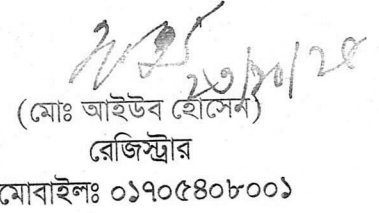 ২৩/১০/২৫
(মোঃ আইউব হোসেন)
রেজিস্ট্রার
মোবাইলঃ ০১৭০৫৪০৮০০১